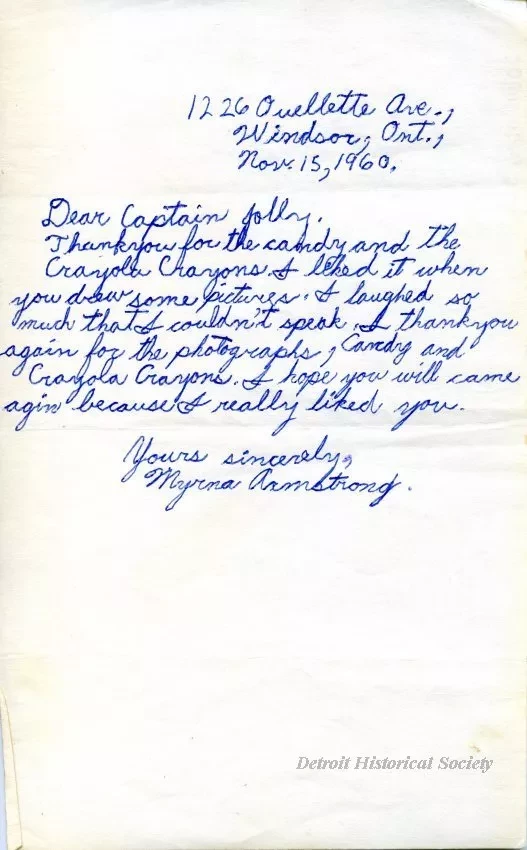 1226 Ouellette Ave.,
Windsor, Ont.,
Nov. 15, 1960.
Dear Captain Jolly.
Thankyou for the candy and the
Crayola Crayons. I liked it when
you drew some pictures. I laughed so
much that I couldn't speak. I thankyou
again for the photographs, Candy and
Crayola Crayons. I hope you will came
agin because I really liked you.
Yours sincerely,
Myrna Armstrong.
Detroit Historical Society